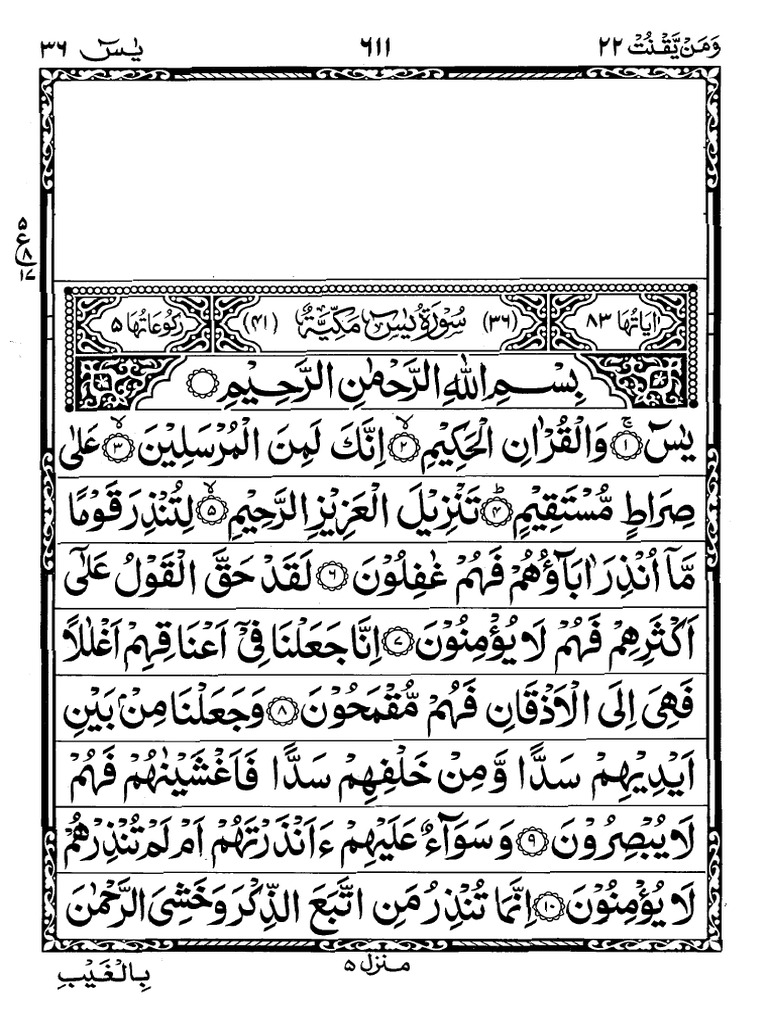 وَمَنْ يَّقْنُتْ ٢٢ ٦١١ يٰسٓ ٣٦
٥
ع
٨
١٧
اٰيَاتُهَا ٨٣ (٣٦) سُوْرَةُ يٰسٓ مَكِّيَّةٌ (٤١) رُكُوْعَاتُهَا ٥
بِسْمِ اللّٰهِ الرَّحْمٰنِ الرَّحِيْمِ ۝
يٰسٓ ۝١ۚ وَالْقُرْاٰنِ الْحَكِيْمِ ۝٢ۙ اِنَّكَ لَمِنَ الْمُرْسَلِيْنَ ۝٣ۙ عَلٰى
صِرَاطٍ مُّسْتَقِيْمٍ ۝٤ؕ تَنْزِيْلَ الْعَزِيْزِ الرَّحِيْمِ ۝٥ۙ لِتُنْذِرَ قَوْمًا
مَّاۤ اُنْذِرَ اٰبَآؤُهُمْ فَهُمْ غٰفِلُوْنَ ۝٦ لَقَدْ حَقَّ الْقَوْلُ عَلٰۤى
اَكْثَرِهِمْ فَهُمْ لَا يُؤْمِنُوْنَ ۝٧ اِنَّا جَعَلْنَا فِيْۤ اَعْنَاقِهِمْ اَغْلٰلًا
فَهِيَ اِلَى الْاَذْقَانِ فَهُمْ مُّقْمَحُوْنَ ۝٨ وَجَعَلْنَا مِنْۢ بَيْنِ
اَيْدِيْهِمْ سَدًّا وَّمِنْ خَلْفِهِمْ سَدًّا فَاَغْشَيْنٰهُمْ فَهُمْ
لَا يُبْصِرُوْنَ ۝٩ وَسَوَآءٌ عَلَيْهِمْ ءَاَنْذَرْتَهُمْ اَمْ لَمْ تُنْذِرْهُمْ
لَا يُؤْمِنُوْنَ ۝١٠ اِنَّمَا تُنْذِرُ مَنِ اتَّبَعَ الذِّكْرَ وَخَشِيَ الرَّحْمٰنَ
منزل ٥
بِالْغَيْبِ